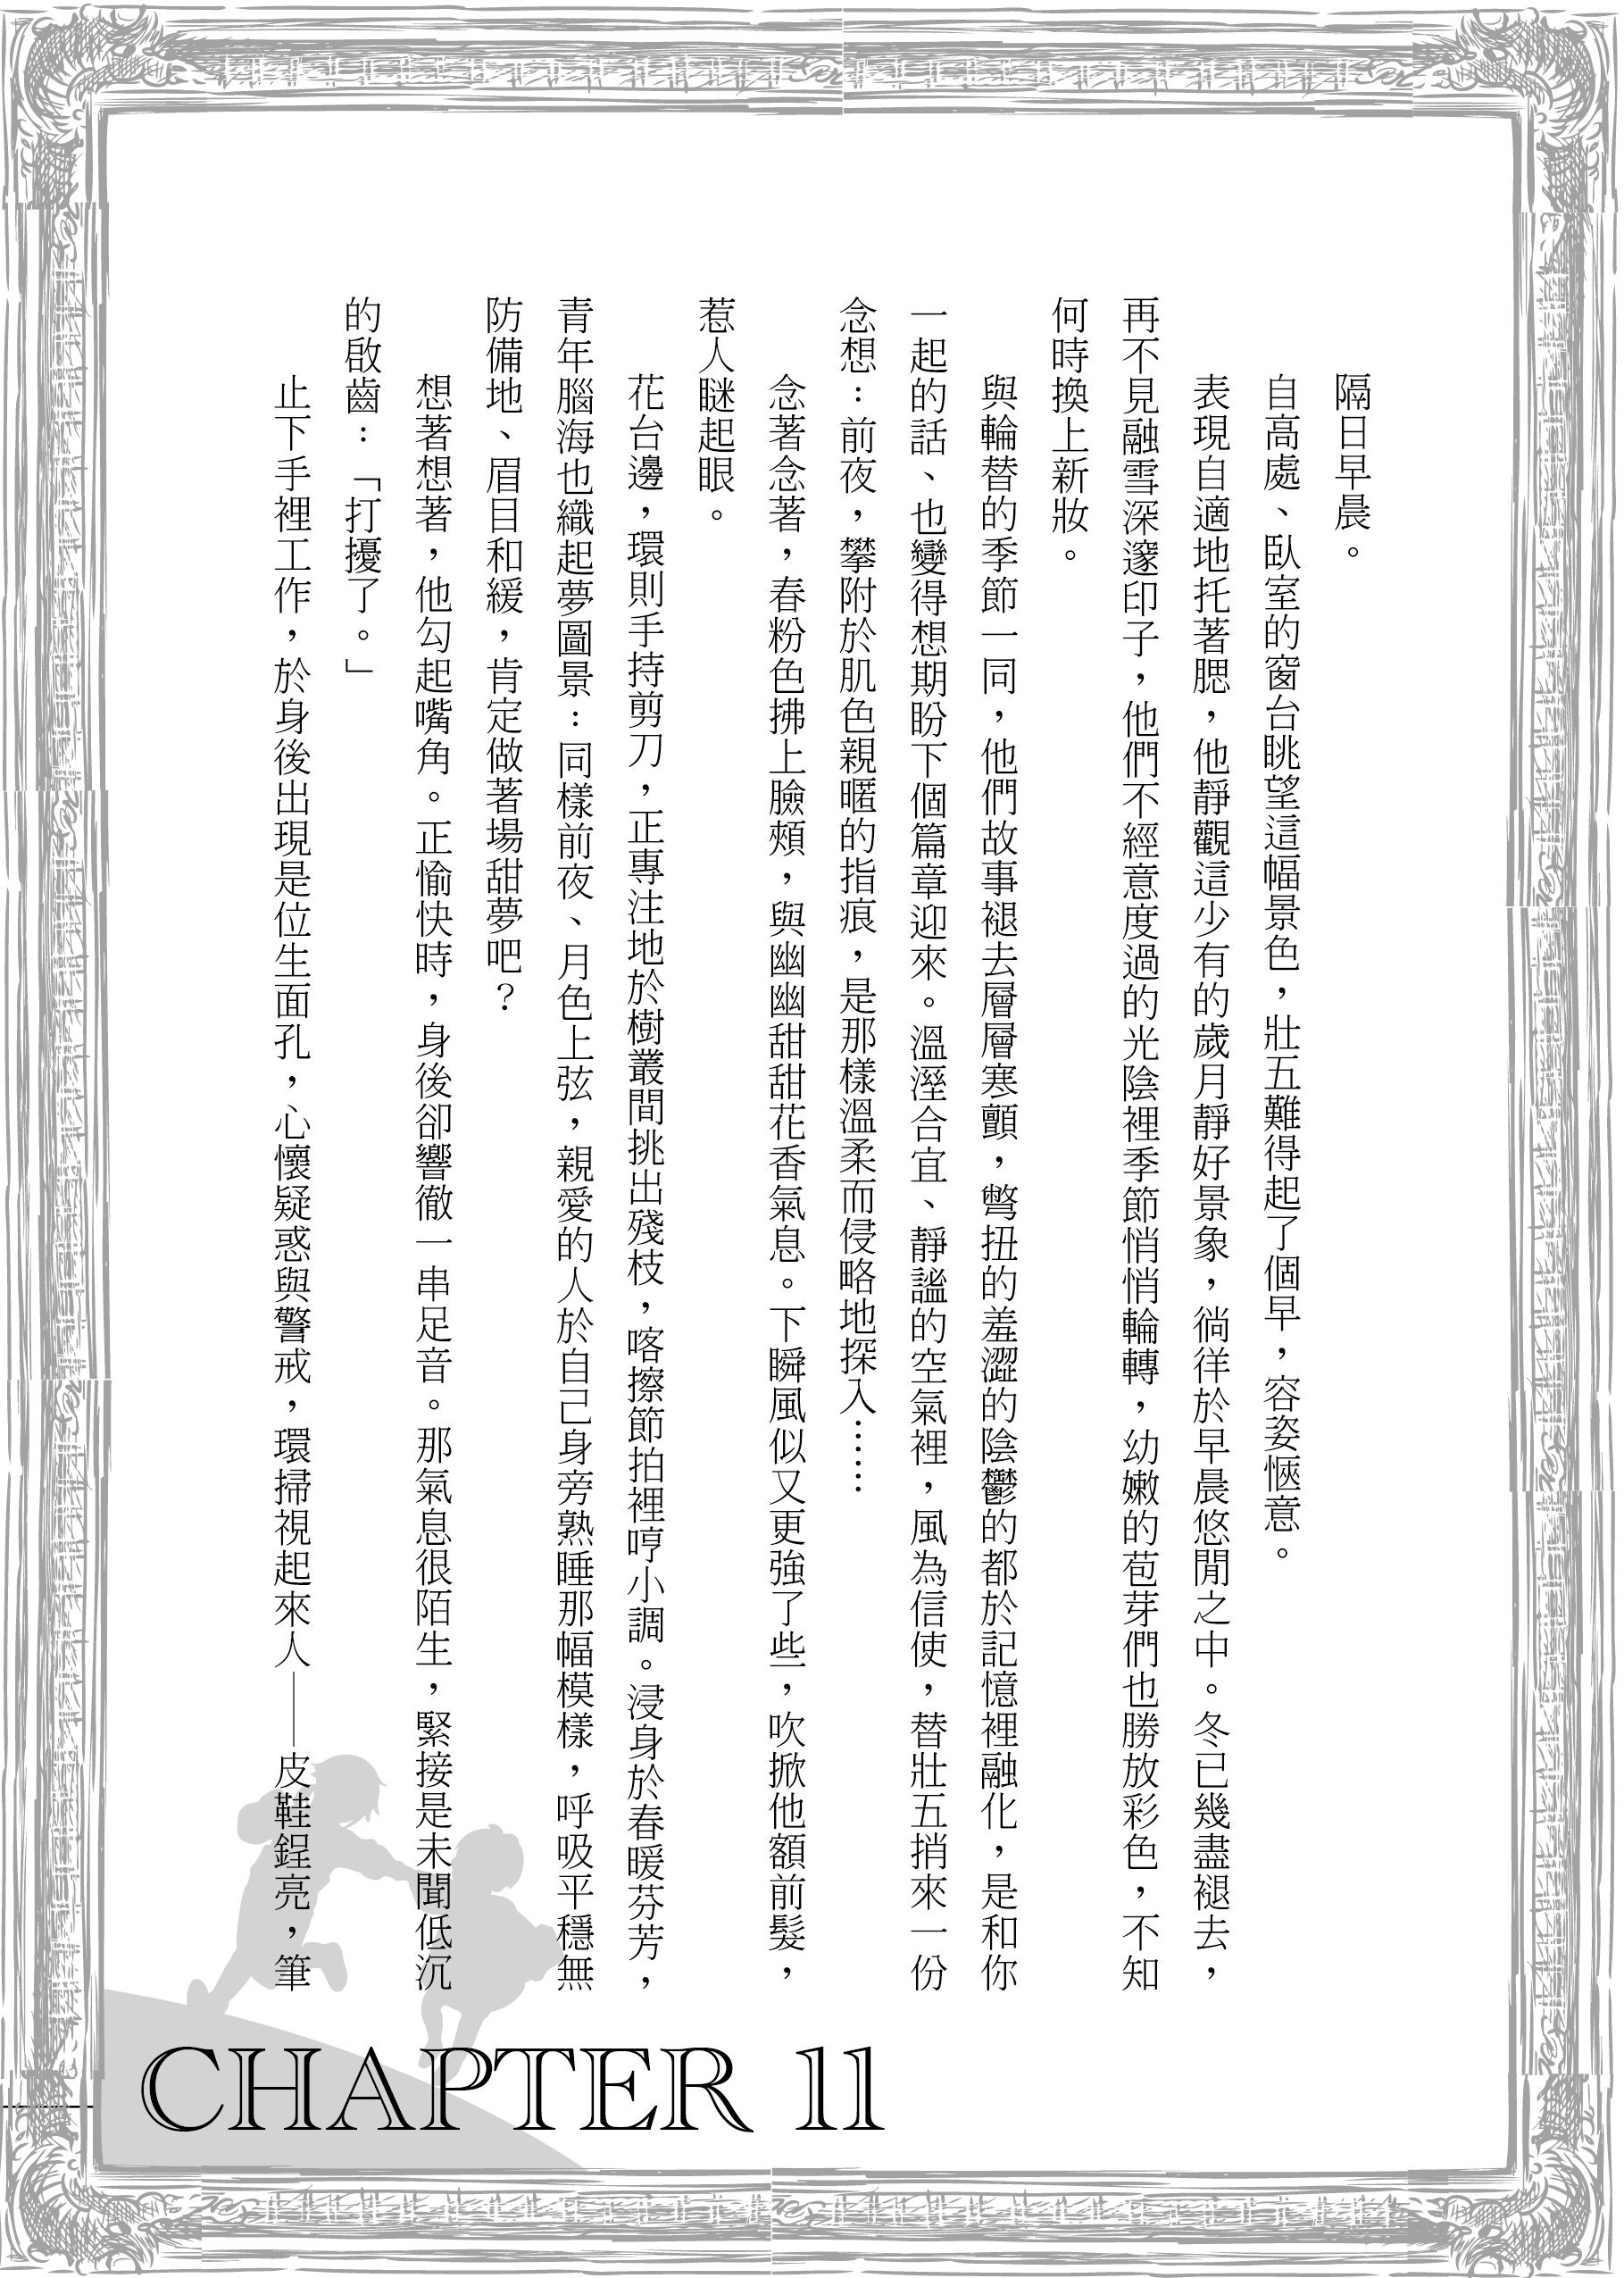 隔日早晨。
自高處、臥室的窗台眺望這幅景色，壯五難得起了個早，容姿愜意。
表現自適地托著腮，他靜觀這少有的歲月靜好景象，徜徉於早晨悠閒之中。冬已幾盡褪去，
再不見融雪深邃印子，他們不經意度過的光陰裡季節悄悄輪轉，幼嫩的苞芽們也勝放彩色，不知
何時換上新妝。
與輪替的季節一同，他們故事褪去層層寒顫，彆扭的羞澀的陰鬱的都於記憶裡融化，是和你
一起的話、也變得想期盼下個篇章迎來。溫溼合宜、靜謐的空氣裡，風為信使，替壯五捎來一份
念想：前夜，攀附於肌色親暱的指痕，是那樣溫柔而侵略地探入……
念著念著，春粉色拂上臉頰，與幽幽甜甜花香氣息。下瞬風似又更強了些，吹掀他額前髮，
惹人瞇起眼。
花台邊，環則手持剪刀，正專注地於樹叢間挑出殘枝，喀擦節拍裡哼小調。浸身於春暖芬芳，
青年腦海也織起夢圖景：同樣前夜、月色上弦，親愛的人於自己身旁熟睡那幅模樣，呼吸平穩無
防備地、眉目和緩，肯定做著場甜夢吧？
想著想著，他勾起嘴角。正愉快時，身後卻響徹一串足音。那氣息很陌生，緊接是未聞低沉
的啟齒：「打擾了。」
止下手裡工作，於身後出現是位生面孔，心懷疑惑與警戒，環掃視起來人——皮鞋鋥亮，筆
CHAPTER 11